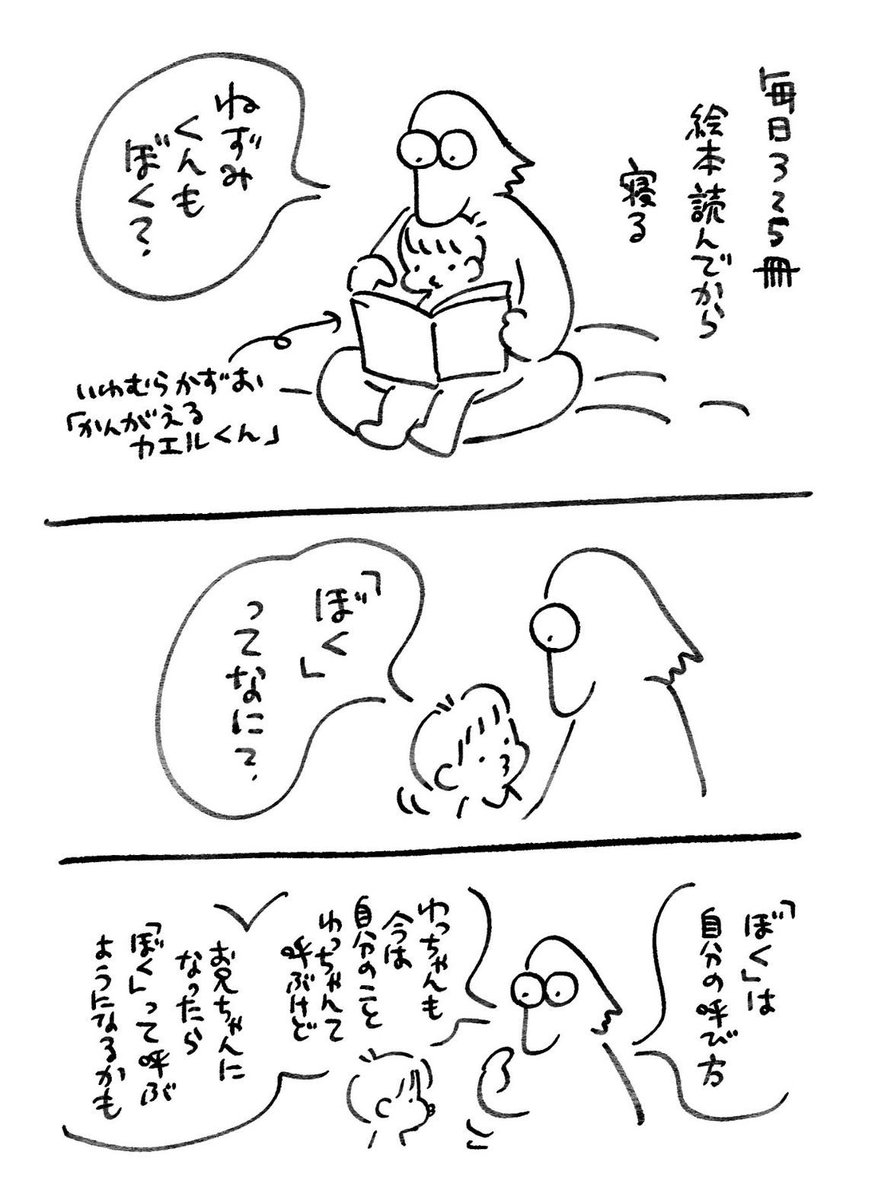 毎日3~5冊
絵本読んでから
寝る
ねずみ
くんも
ぼく?
いわむらかずお
「かんがえる
カエルくん」
「ぼく」
ってなに?
「ぼく」は
自分の呼び方
ゆっちゃんも
今は
自分のこと
ゆっちゃんて
呼ぶけど
お兄ちゃんに
なったら
「ぼく」って呼ぶ
ようになるかも